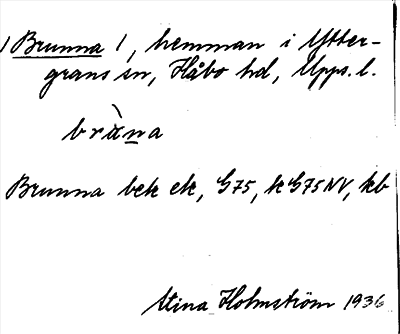 / Brunna /, hemman i Ytter-
grans sn, Håbo hd, Upps. l.
bràna
Brunna bek ek, G75, k G75NV, kb
Stina Holmström 1936